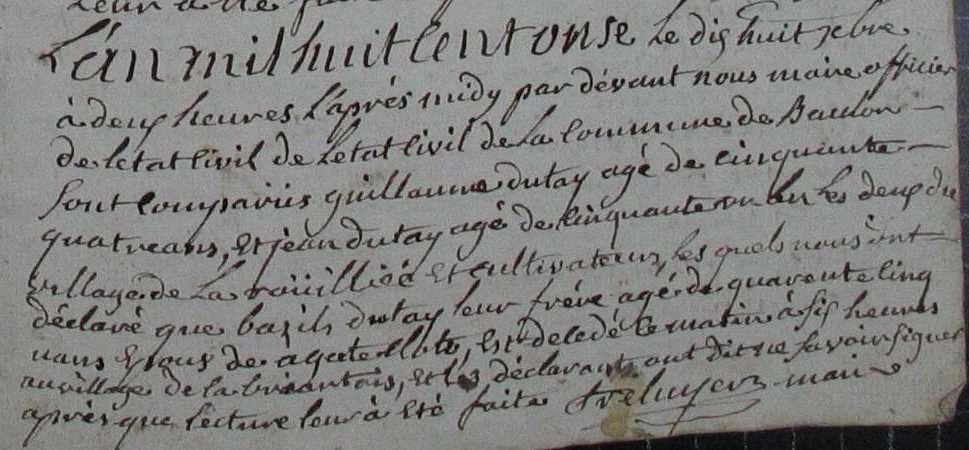 L'an mil huit cent onse le dix huit xbre
à deux heures l'après midy par dévant nous maire officier
de letat civil de letat civil de la commune de Baulon
sont comparüs guillaume dutay agé de cinquante
quatreans, et jean dutay agé de cinquante un an les deux du
village de la roüilliée et cultivateurs, les quels nous ont
déclaré que bazile dutay leur frére agé de quarente cinq
nans epoux de agate, est décedé ce matin à six heures
au village de la bréantais, et les déclarant ont dit ne savoir signer
après que lecture leur à eté faite Treluyer maire